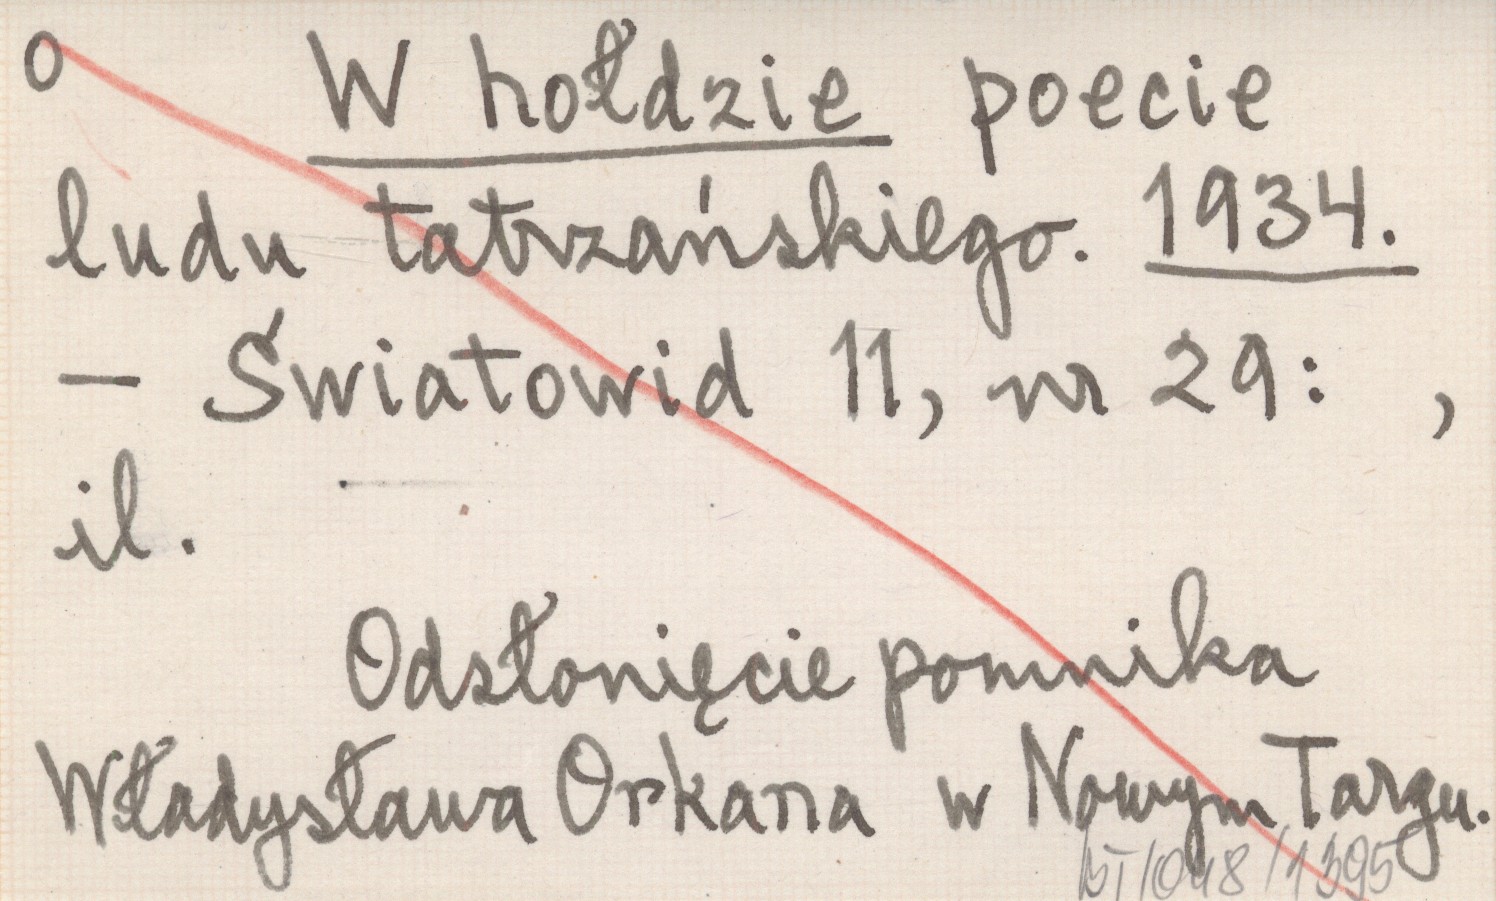 o W hołdzie poecie
ludu tatrzańskiego. 1934.
- Światowid 11, nr 29: ,
il.
Odsłonięcie pomnika
Władysława Orkana w Nowym Targu.
/048/1395